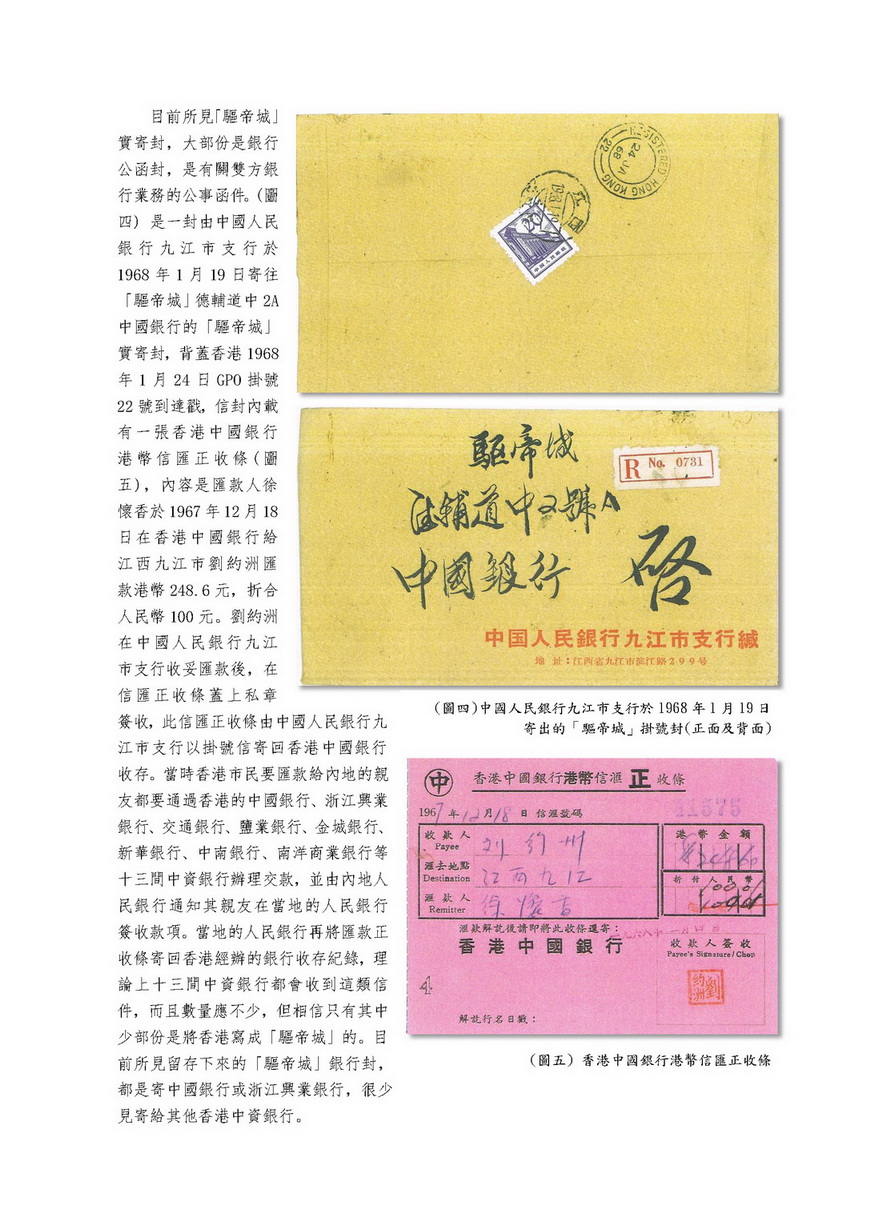 目前所見「驅帝城」
實寄封，大部份是銀行
公函封，是有關雙方銀
行業務的公事函件。(圖
四) 是一封由中國人民
銀行九江市支行於
1968 年 1 月 19 日寄往
「驅帝城」德輔道中 2A
中國銀行的「驅帝城」
實寄封，背蓋香港 1968
年 1 月 24 日 GPO 掛號
22 號到達戳，信封內載
有一張香港中國銀行
港幣信匯正收條(圖
五)，內容是匯款人徐
懷香於 1967 年 12 月 18
日在香港中國銀行給
江西九江市劉約洲匯
款港幣 248.6 元，折合
人民幣 100 元。劉約洲
在中國人民銀行九江
市支行收妥匯款後，在
信匯正收條蓋上私章
簽收，此信匯正收條由中國人民銀行九
江市支行以掛號信寄回香港中國銀行
收存。當時香港市民要匯款給內地的親
友都要通過香港的中國銀行、浙江興業
銀行、交通銀行、鹽業銀行、金城銀行、
新華銀行、中南銀行、南洋商業銀行等
十三間中資銀行辦理交款，並由內地人
民銀行通知其親友在當地的人民銀行
簽收款項。當地的人民銀行再將匯款正
收條寄回香港經辦的銀行收存紀錄，理
論上十三間中資銀行都會收到這類信
件，而且數量應不少，但相信只有其中
少部份是將香港寫成「驅帝城」的。目
前所見留存下來的「驅帝城」銀行封，
都是寄中國銀行或浙江興業銀行，很少
見寄給其他香港中資銀行。
REGISTERED HONG KONG
22
24 JA
68
江西
中国人民邮政
驅帝城
R No. 0731
德輔道中2號A
中國銀行
啓
中国人民銀行九江市支行緘
地 址：江西省九江市滨江路299号
(圖四)中國人民銀行九江市支行於 1968 年 1 月 19 日
寄出的「驅帝城」掛號封(正面及背面)
中 香港中國銀行港幣信滙 正 收條
1967 年 12 月 18 日 信滙號碼
收款人
Payee
刘约州
港幣金額
滙去地點
Destination
江西九江
折付人民幣
滙款人
Remitter
滙款解訖後請即將此收條還寄：
香港中國銀行
收款人簽收
Payee's Signature/Chop
劉約洲
4
解訖行名日戳：
(圖五) 香港中國銀行港幣信匯正收條